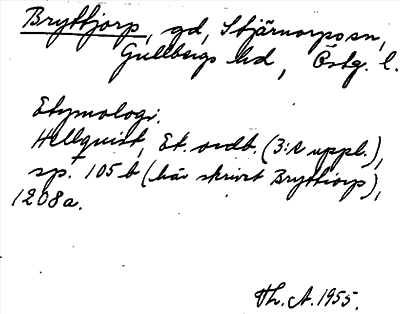 Bryttjorp, gd, Stjärnorps sn,
Gullbergs hd, Östg. l.
Etymologi.
Hellquist, Et. ordb. (3:e uppl.),
sp. 105 b (här skrivt Bryttiorp),
1208a.
Th. A. 1955.